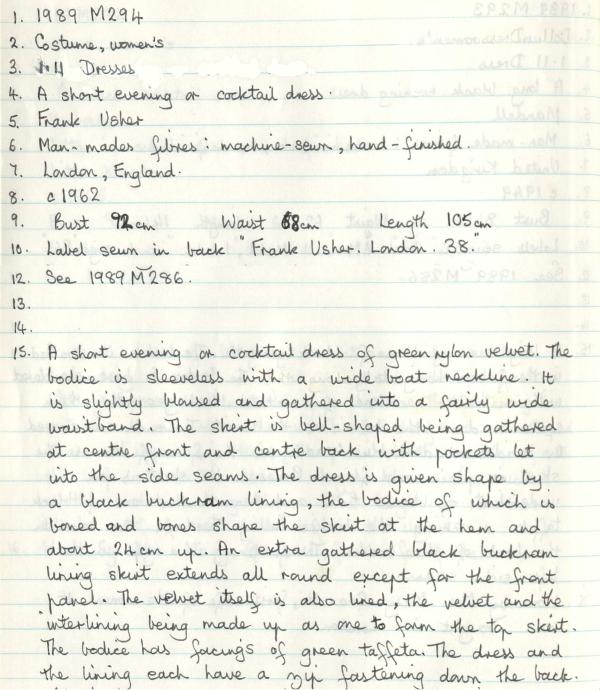 1. 1989 M294
2. Costume, women's
3. 11 Dresses
4. A short evening or cocktail dress.
5. Frank Usher
6. Man-mades fibres: machine-sewn, hand-finished.
7. London, England.
8. c1962
9. Bust 92cm Waist 68cm Length 105cm
10. Label sewn in back "Frank Usher. London. 38."
12. See 1989 M286.
13.
14.
15. A short evening or cocktail dress of green nylon velvet. The
bodice is sleeveless with a wide boat neckline. It
is slightly bloused and gathered into a fairly wide
waistband. The skirt is bell-shaped being gathered
at centre front and centre back with pockets let
into the side seams. The dress is given shape by
a black buckram lining, the bodice of which is
boned and bones shape the skirt at the hem and
about 24cm up. An extra gathered black buckram
lining skirt extends all round except for the front
panel. The velvet itself is also lined, the velvet and the
interlining being made up as one to form the top skirt.
The bodice has facings of green taffeta. The dress and
the lining each have a zip fastening down the back.